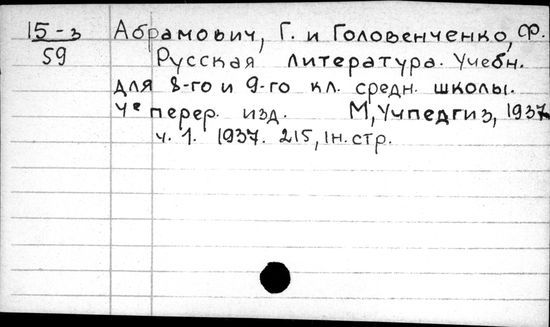 15-з Абрамович, Г. и Головенченко, Ф.
59 Русская литература. Учебн.
для 8-го и 9-го кл. средн. школы.
4е перер. изд. М, Учпедгиз, 1937
ч. 1. 1937. 215, 1н. стр.